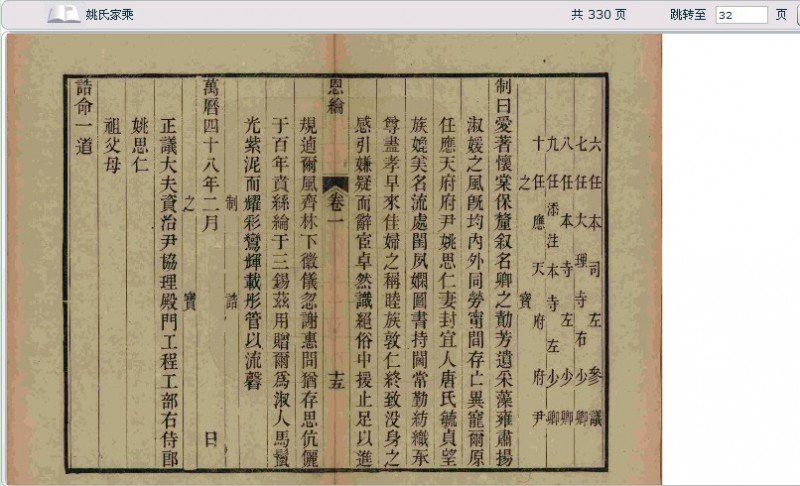 姚氏家乘 共 330 页 跳转至 32 页
六任本司左參議
七任大理寺右少卿
八任本寺左少卿
九任添注本寺左少卿
十任應天府府尹
之寶
制曰愛著懷棠保釐叙名卿之勣芳遺采藻雍肅揚
淑媛之風旣均內外同勞甯間存亡異寵爾原
任應天府府尹姚思仁妻封宜人唐氏毓貞望
族嫓美名流處閨夙嫻圖書持閫常勤紡織承
尊盡孝早來佳婦之稱睦族敦仁終致没身之
感引嫌疑而辭宦卓然識絕俗中援止足以進
恩綸 卷一 十五
規適爾風齊林下徽儀忽謝惠問猶存思伉儷
于百年賁絲綸于三錫茲用贈爾爲淑人馬鬣
光紫泥而耀彩鸞輝載彤管以流馨
制誥
萬曆四十八年二月 日
之寶
正議大夫資治尹協理殿門工程工部右侍郎
姚思仁
祖父母
誥命一道